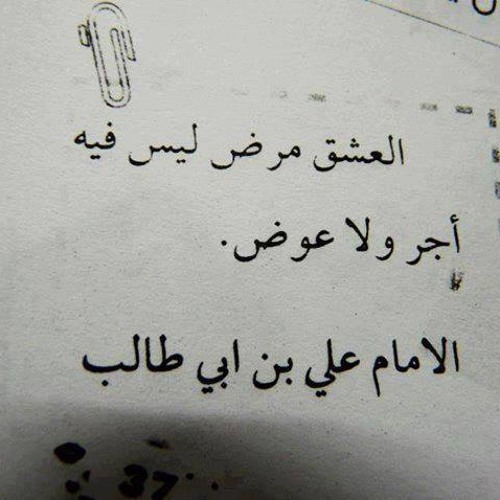 العشق مرض ليس فيه
أجر ولا عوض.
الامام علي بن ابي طالب
37